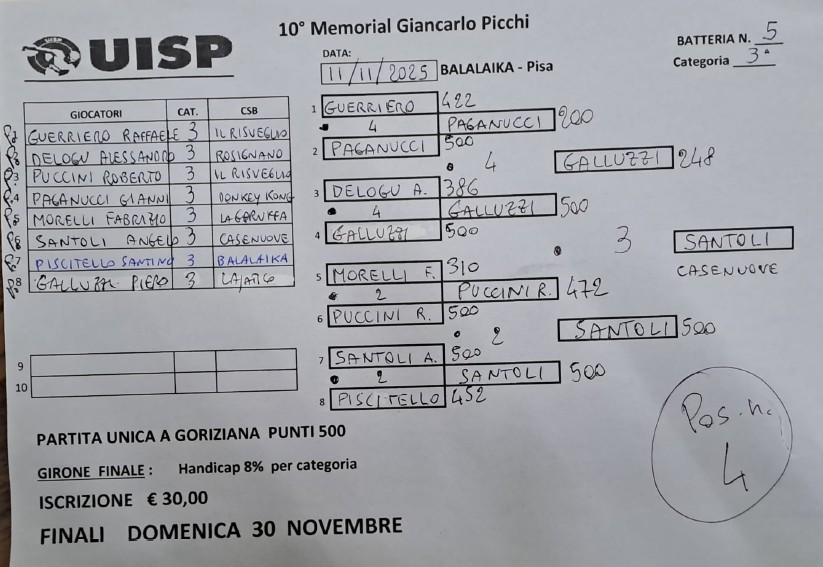 UISP
10° Memorial Giancarlo Picchi
DATA:
11/11/2025 BALALAIKA - Pisa
BATTERIA N. 5
Categoria 3ª
GIOCATORI CAT. CSB
GUERRIERO RAFFAELE 3 IL RISVEGLIO
DELOGU ALESSANDRO 3 ROSIGNANO
P.3 PUCCINI ROBERTO 3 IL RISVEGLIO
P.4 PAGANUCCI GIANNI 3 DONKEY KONG
P.5 MORELLI FABRIZIO 3
SANTOLI ANGELO 3 CASENUOVE
P.7 PISCITELLO SANTINO 3 BALALAIKA
P.8 GALLUZZI PIERO 3 LAJATICO
9
10
1 GUERRIERO 422
4 PAGANUCCI 200
2 PAGANUCCI 500
4 GALLUZZI 248
3 DELOGU A. 386
4 GALLUZZI 500
4 GALLUZZI 500
3 SANTOLI
CASENUOVE
5 MORELLI F. 310
2 PUCCINI R. 472
6 PUCCINI R. 500
2 SANTOLI 500
7 SANTOLI A. 500
2 SANTOLI 500
8 PISCITELLO 452
PARTITA UNICA A GORIZIANA PUNTI 500
GIRONE FINALE : Handicap 8% per categoria
ISCRIZIONE € 30,00
FINALI DOMENICA 30 NOVEMBRE
Pos. n.
4